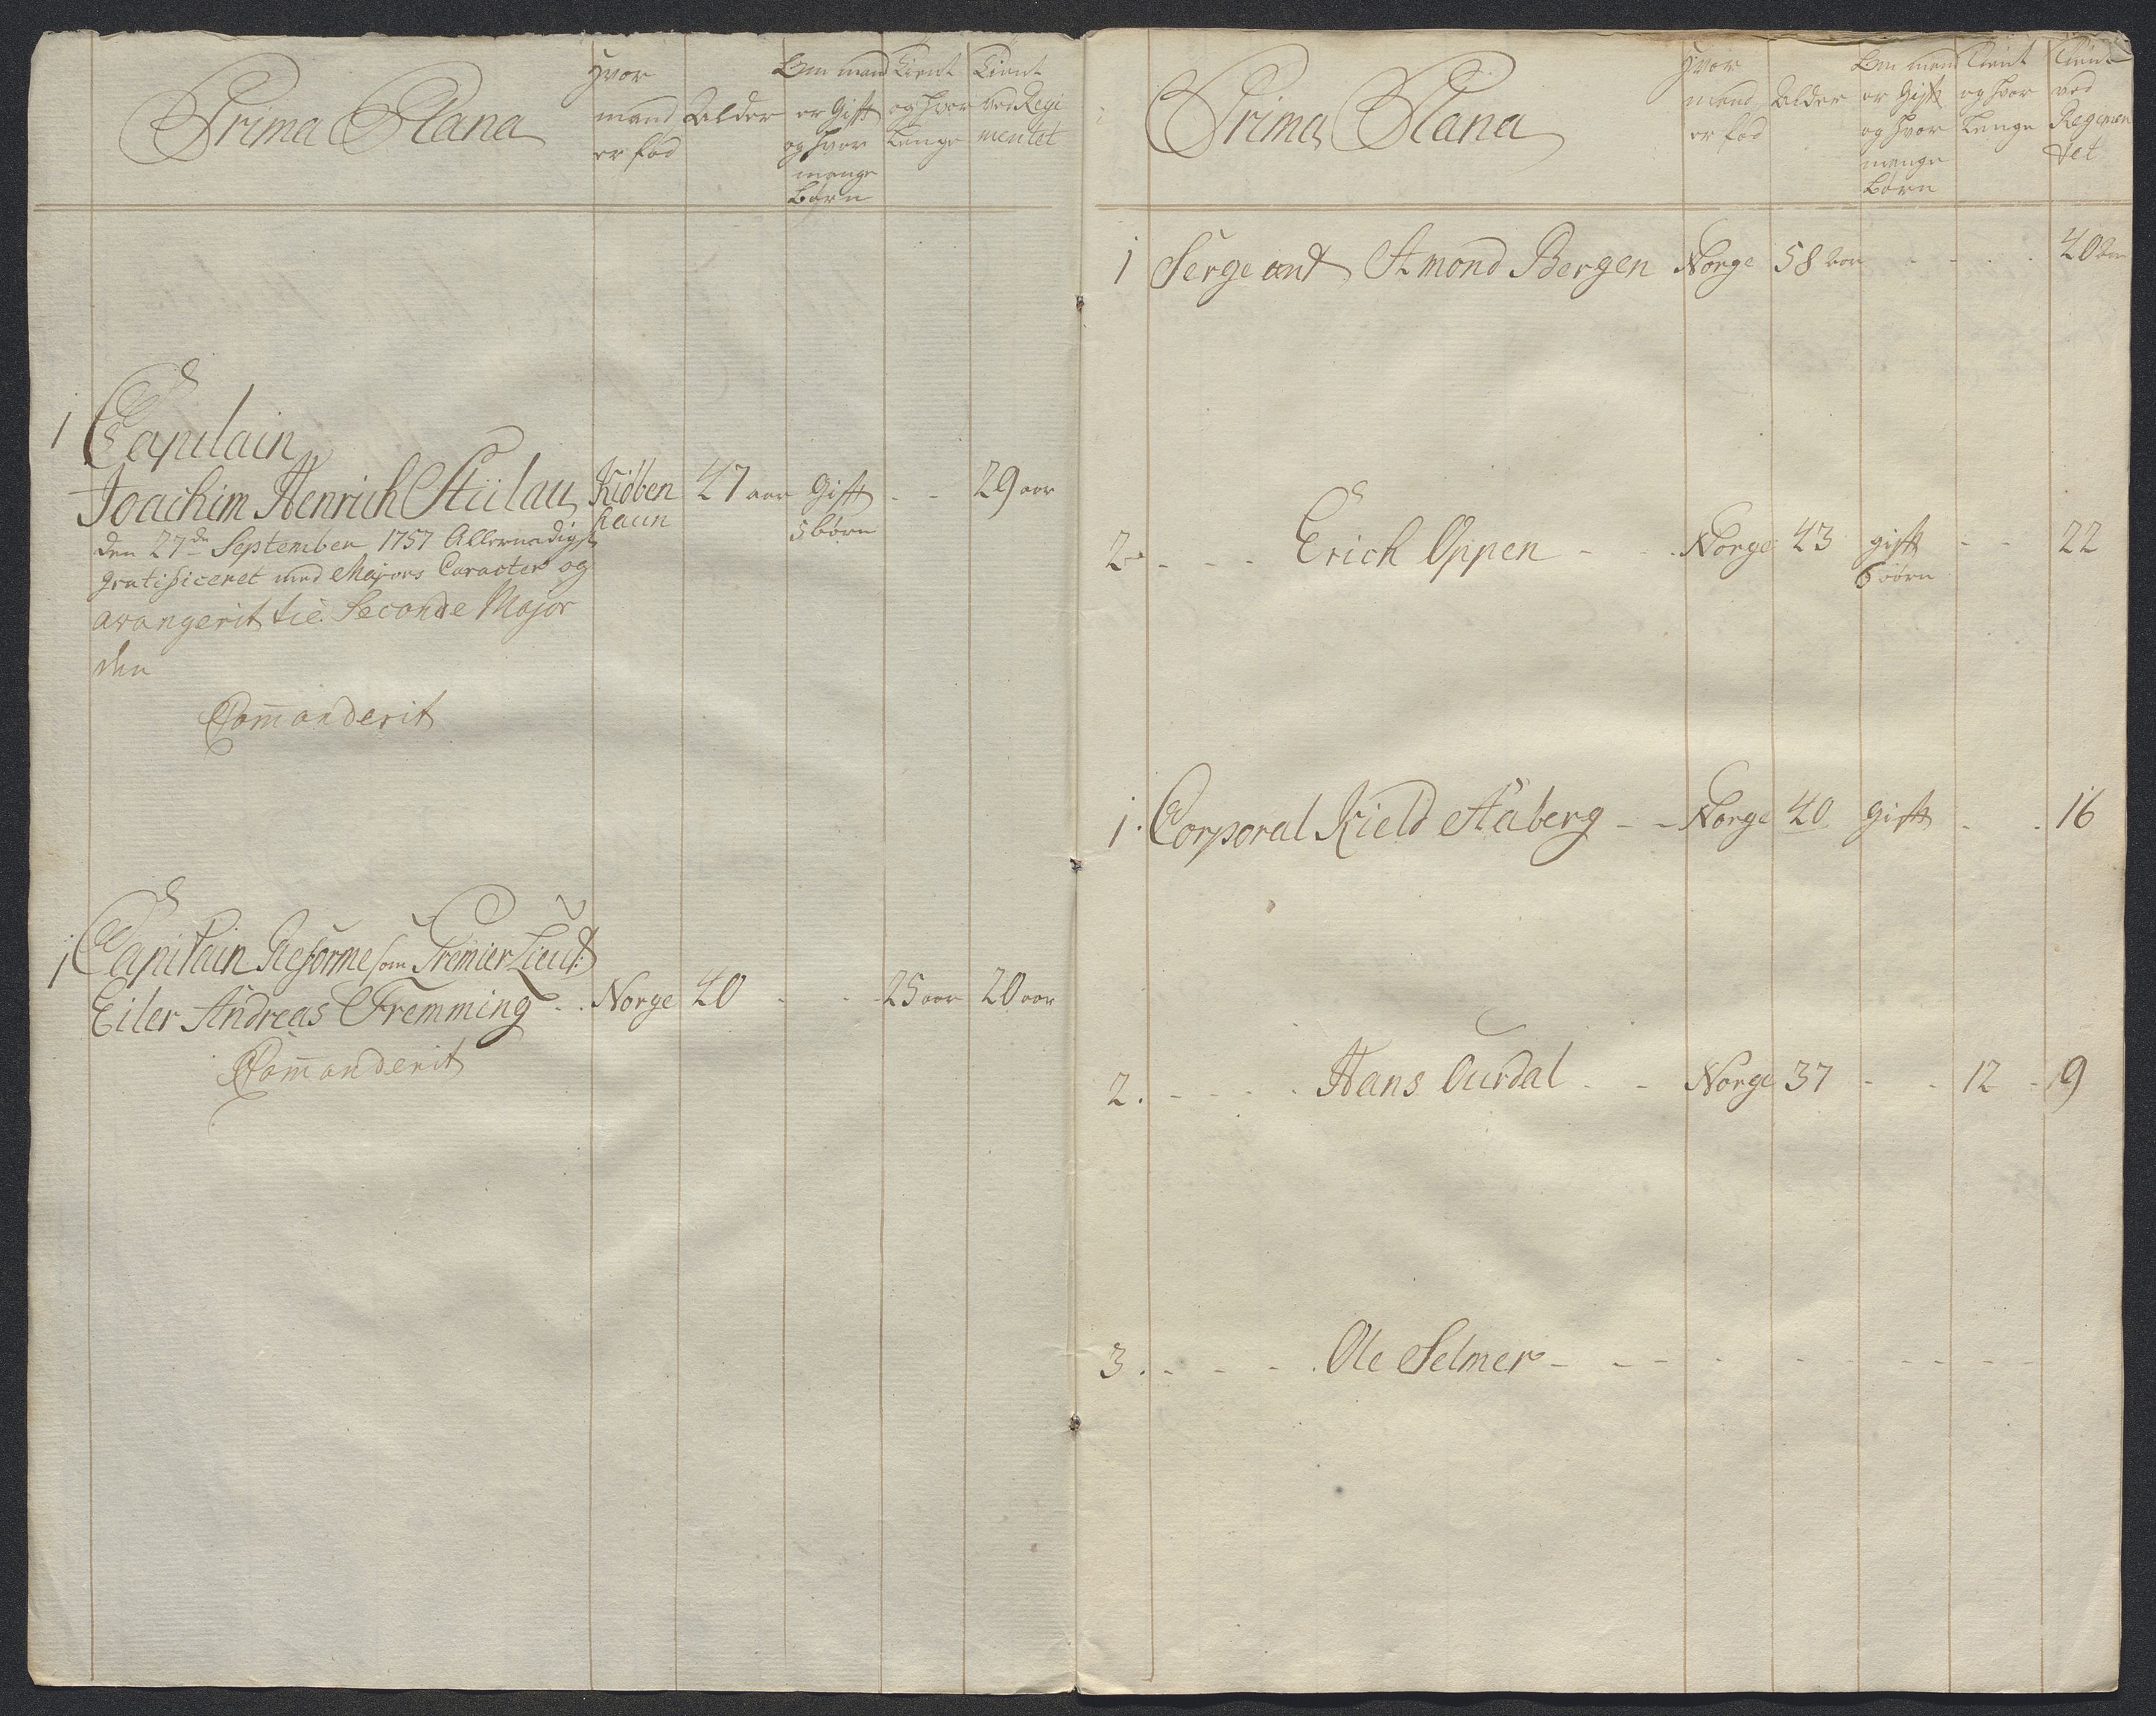 Prima Plana
Hvor
mand
er fød
Alder
Om mand
er Gift
og hvor
mange
Børn
Tient
og hvor
Lenge
Tient
ved Regi
mentet
1 Capitain
Joachim Henrich Stülau Kiöben 47 aar Gift - - 29 aar
haun 5 børn
den 27de September 1757 Allernadigst
gratificeret med Majors Caracter og
arangerit til Seconde Major
den
Com̄anderit
1 Capitain Reforme som Premier Lieut:
Eiler Andreas Fremming - . Norge 40 - - 25 aar 20 aar
Com̄anderit
Prima Plana
Hvor
mand
er fød
Alder
Om mand
er Gift
og hvor
mange
Børn
Tient
og hvor
Lenge
Tient
ved
Regimen
tet
1 Sergeant Amond Bergen Norge 58 aar - - . . 40 aar
2 - - - Erich Oppen - - . Norge 43 gift - - 22
6 børn
1. Corporal Kield Aaberg - - Norge 40 Gift - . 16
2. - - - . Hans Ourdal . - Norge 37 - - 12 - 9
3. - - - . Ole Selmer - - - - - - - - - -